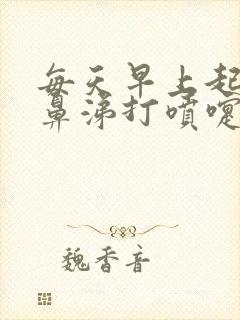 每天早上起
鼻涕打喷嚏
魏香音